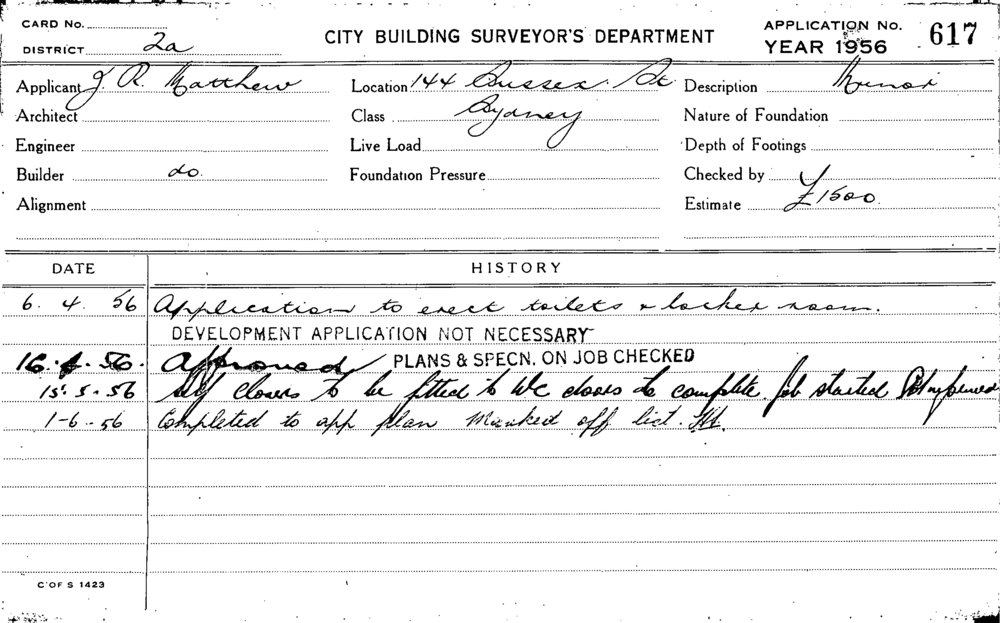 CARD No.
DISTRICT 2a
CITY BUILDING SURVEYOR'S DEPARTMENT
APPLICATION No. 617
YEAR 1956
Applicant J. R. Matthew Location 144 Sussex St Description Minor
Architect Class Sydney Nature of Foundation
Engineer Live Load Depth of Footings
Builder do. Foundation Pressure Checked by
Alignment Estimate £1500
DATE HISTORY
6. 4. 56 Application to erect toilets & locker room.
DEVELOPMENT APPLICATION NOT NECESSARY
16. 4. 56. Approved PLANS & SPECN. ON JOB CHECKED
15. 5. 56 self closers to be fitted to WC doors to complete. job started
1-6-56 Completed to app plan Marked off list.
C OF S 1423